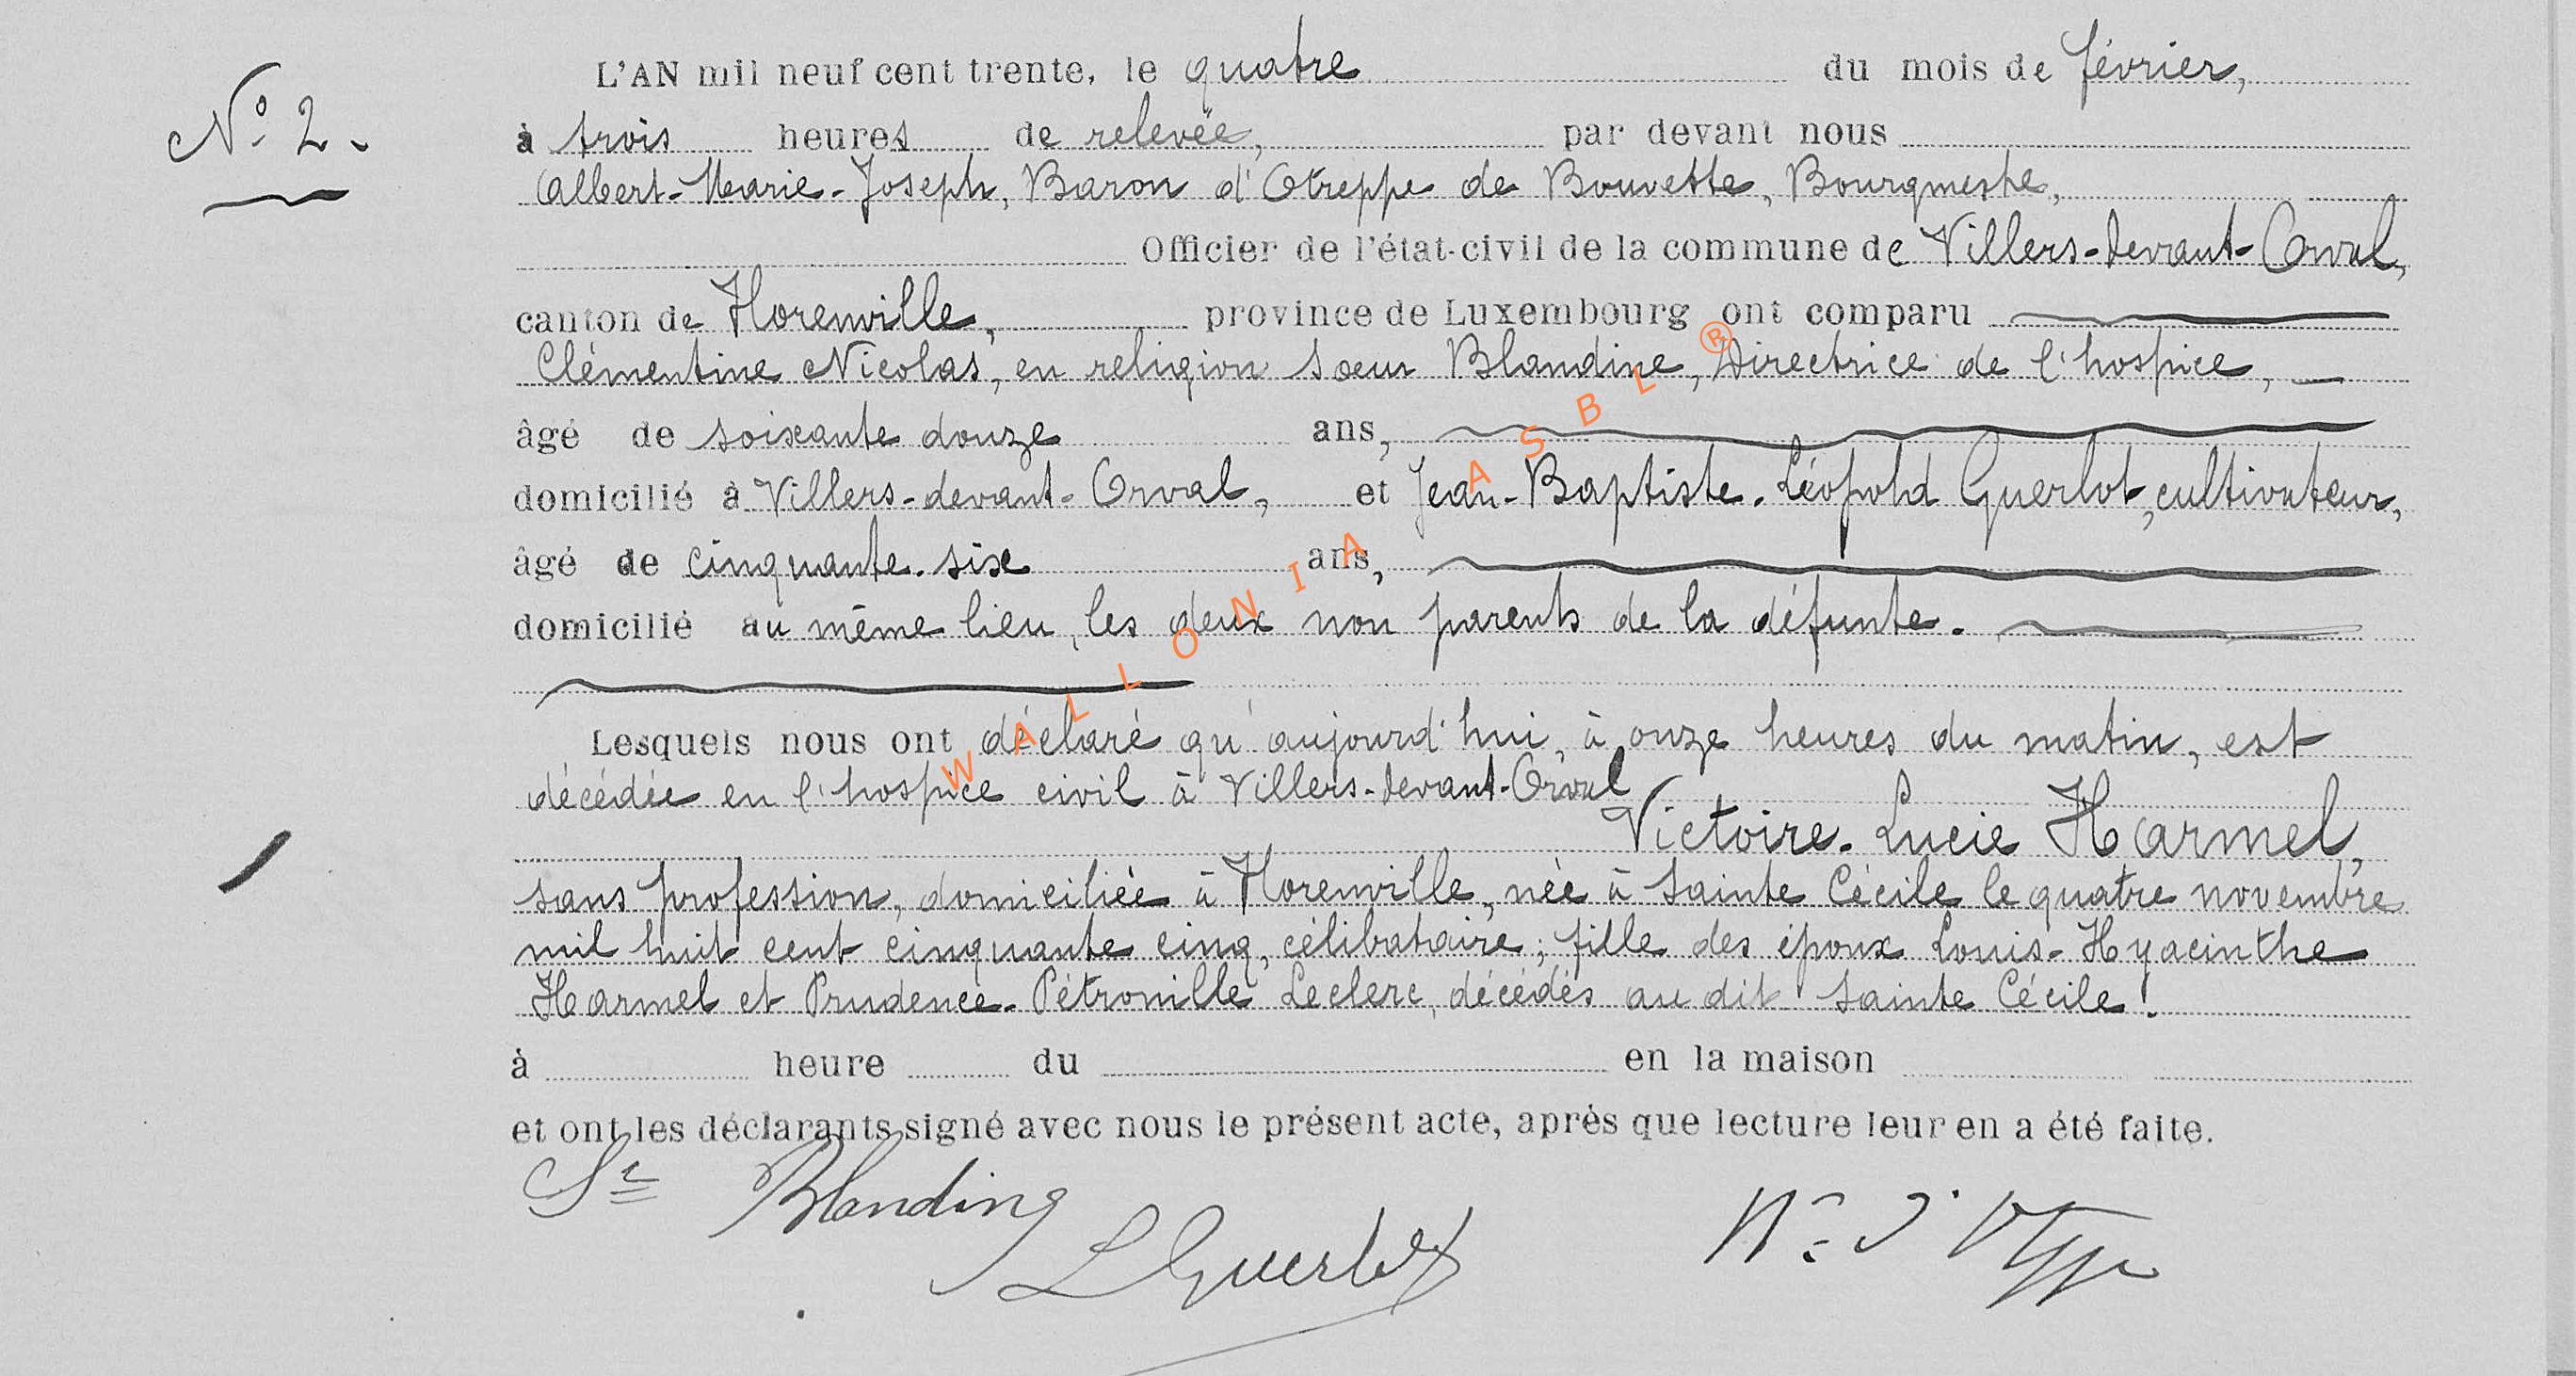 L'AN mil neuf cent trente, le quatre du mois de février,
N° 2.
à trois heures de relevée, par devant nous
Albert-Marie-Joseph, Baron d'Otreppe de Bouvette, Bourgmestre,
Officier de l'état-civil de la commune de Villers-devant-Orval,
canton de Florenville, province de Luxembourg ont comparu
Clémentine Nicolas, en religion sœur Blandine, Directrice de l'hospice,
âgé de soixante douze ans,
domicilié à Villers-devant-Orval, et Jean-Baptiste-Léopold Guerlot, cultivateur,
âgé de cinquante-six ans,
domicilié au même lieu, les deux non parents de la défunte.
Lesquels nous ont déclaré qu'aujourd'hui, à onze heures du matin, est
décédée en l'hospice civil à Villers-devant-Orval
Victoire-Lucie Harmel,
sans profession, domiciliée à Florenville, née à Sainte Cécile le quatre novembre
mil huit cent cinquante cinq, célibataire; fille des époux Louis-Hyacinthe
Harmel et Prudence-Pétronille Leclerc, décédés au dit Sainte Cécile.
à heure du en la maison
et ont les déclarants signé avec nous le présent acte, après que lecture leur en a été faite.
Sr Blandine
L Guerlot
WALLONIA ASBL ®